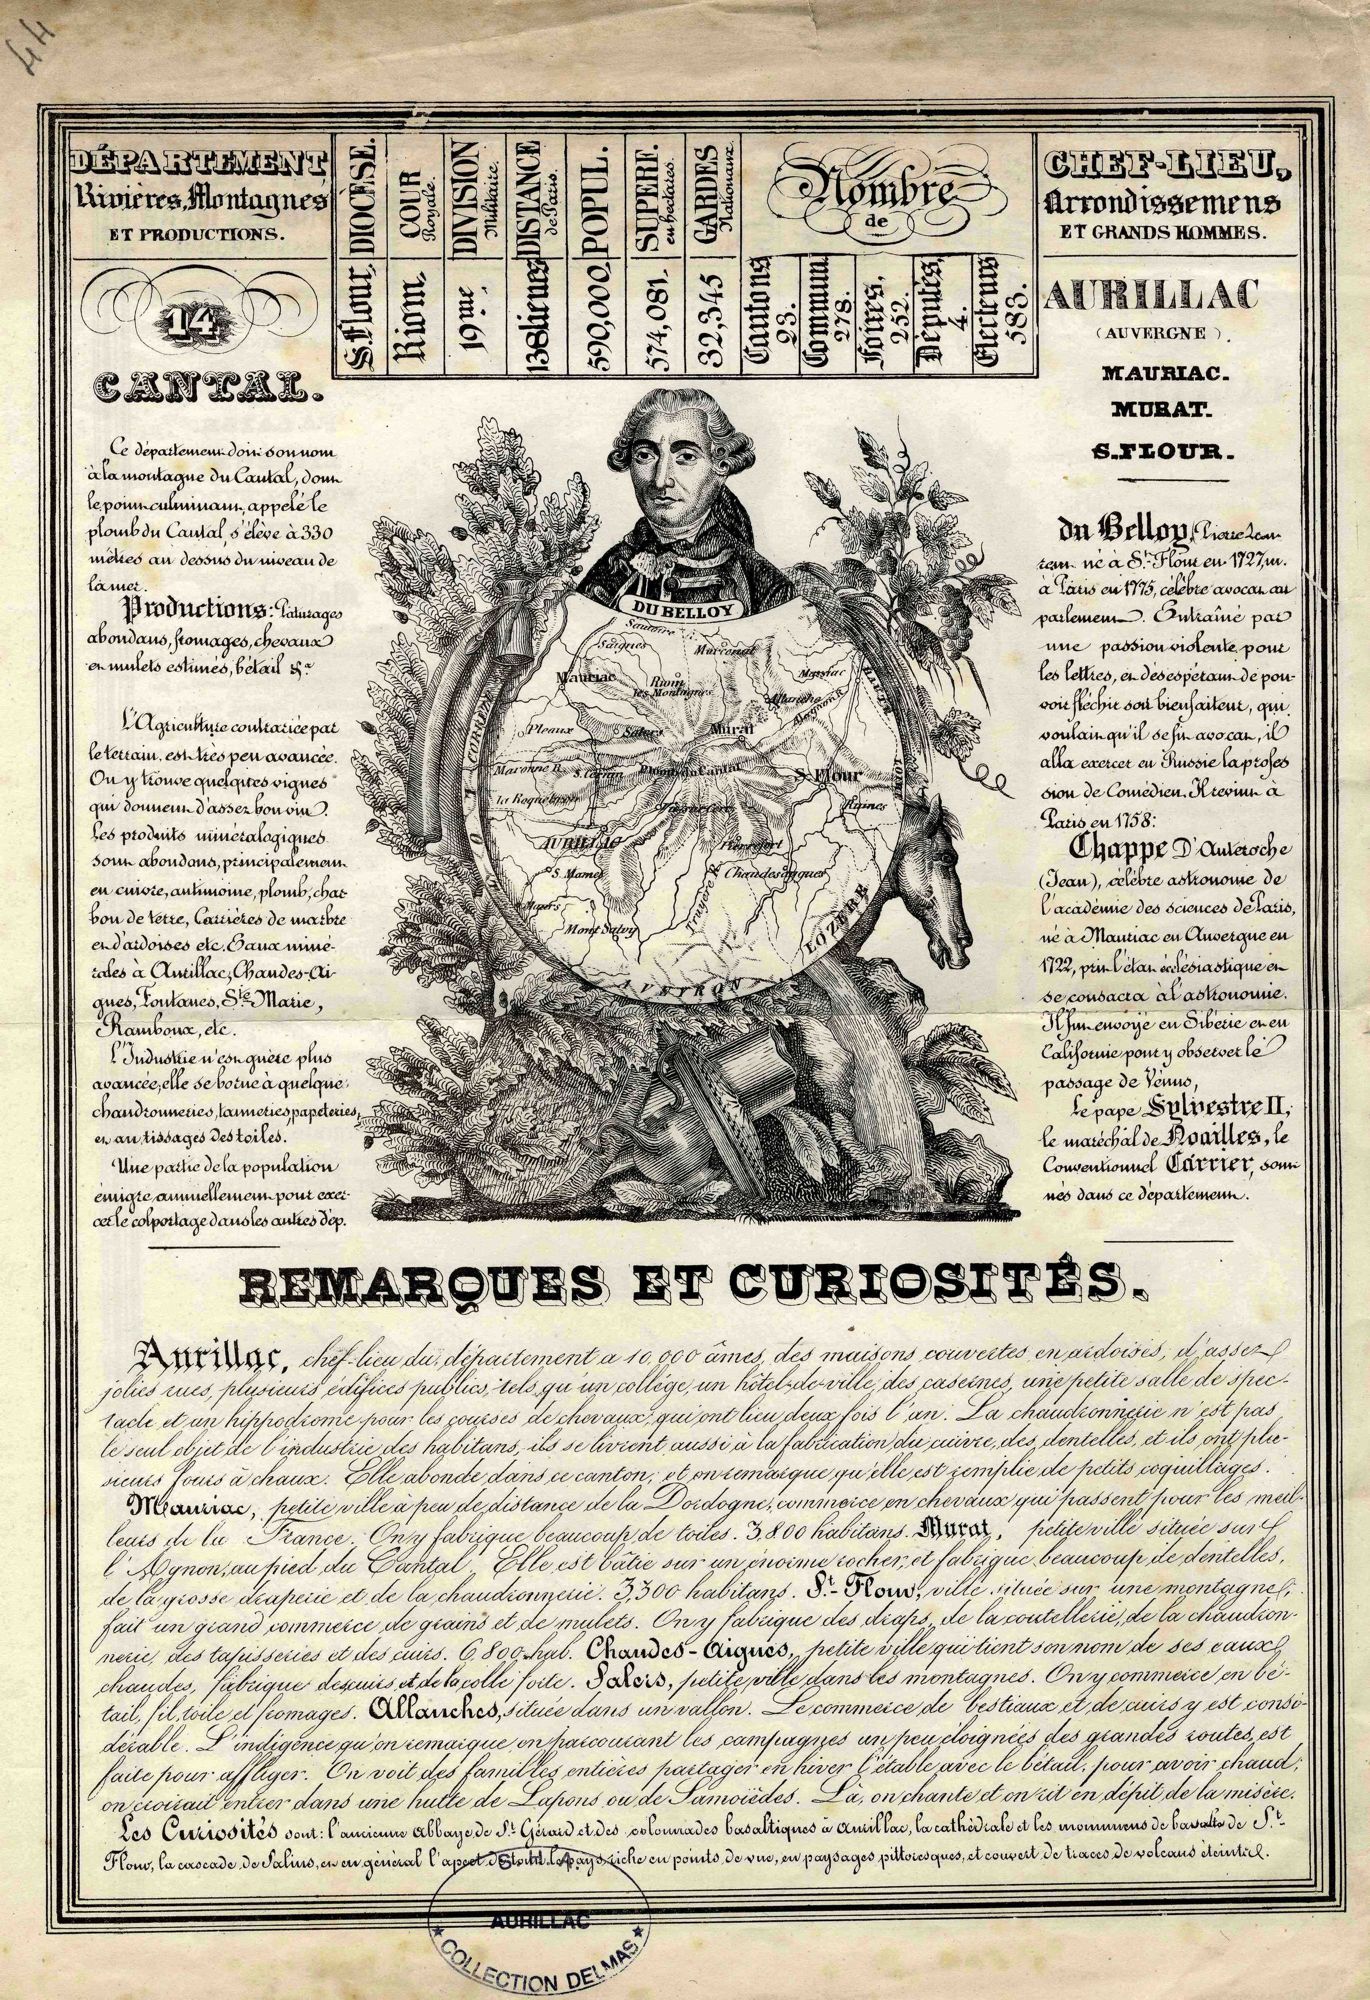 44
DÉPARTEMENT
Rivières, Montagnes
ET PRODUCTIONS.
DIOCÈSE.
S. Flour,
COUR
Royale.
Riom.
DIVISION
Militaire.
19me
DISTANCE
de Paris.
138 lieues
POPUL.
590,000
SUPERF.
en hectares.
574,081.
GARDES
Nationaux
32,345
Nombre
de
Cantons
23.
Commun
278.
Foires,
252.
Députés,
4.
Electeurs
583.
CHEF-LIEU,
Arrondissemens
ET GRANDS HOMMES.
14
CANTAL.
Ce département doit son nom
à la montagne du Cantal, dont
le point culminant, appelé le
plomb du Cantal, s'élève à 330
mètres au dessus du niveau de
la mer.
Productions: Paturages
abondans, fromages, chevaux
et mulets estimés, bétail &a
L'Agriculture contrariée par
le terrain est très peu avancée.
On y trouve quelques vignes
qui donnent d'assez bon vin.
Les produits minéralogiques
sont abondans, principalement
en cuivre, antimoine, plomb, char
bon de terre, Carrières de marbre
et d'ardoises etc. Eaux miné-
rales à Aurillac, Chaudes-Ai-
gues, Fontanes, Ste Marie,
Ramboux, etc.
L'Industrie n'est guère plus
avancée, elle se borne à quelque
chaudronneries, tanneries, papeteries,
et au tissages des toiles.
Une partie de la population
émigre annuellement pour exer-
cer le colportage dans les autres dép.
AURILLAC
(AUVERGNE).
MAURIAC.
MURAT.
S. FLOUR.
du Belloy, Pierre Lau-
rent né à St Flour en 1727, m.
à Paris en 1775, célèbre avocat au
parlement. Entrainé par
une passion violente pour
les lettres, et désespérant de pou-
voir fléchir son bienfaiteur, qui
voulait qu'il se fit avocat, il
alla exercer en Russie la profes
sion de Comédien. Il revint à
Paris en 1758:
Chappe D'Auteroche
(Jean), célèbre astronome de
l'académie des sciences de Paris,
né à Mauriac en Auvergne en
1722, prit l'état ecclésiastique et
se consacra à l'astronomie.
Il fut envoyé en Sibérie et en
Californie pour y observer le
passage de Vénus,
Le pape Sylvestre II,
le maréchal de Noailles, le
Conventionnel Carrier, sont
nés dans ce département.
DU BELLOY
Saignes
Marcenat
Mauriac
Riom
les Montagnes
Massiac
Allanche
Alagnon R.
Pleaux
Salers
Murat
Maronne R.
S. Cernin
Plomb du Cantal
S. Flour
la Roquebrou
Vic sur Cère
Ruines
AURILLAC
Pierrefort
S. Mamet
Chaudesaigues
Maurs
Truyere R.
Mont Salvy
CORREZE
LOT
HAUTE
LOIRE
LOZÈRE
AVEYRON
REMARQUES ET CURIOSITÉS.
Aurillac, chef-lieu du département a 10,000 âmes, des maisons couvertes en ardoises, d'assez
jolies rues, plusieurs édifices publics, tels qu'un collége, un hôtel-de-ville, des casernes, une petite salle de spec-
tacle et un hippodrome pour les courses de chevaux, qui ont lieu deux fois l'an. La chaudronnerie n'est pas
le seul objet de l'industrie des habitans, ils se livrent aussi à la fabrication du cuivre, des dentelles, et ils ont plu-
sieurs fours à chaux. Elle abonde dans ce canton, et on remarque qu'elle est remplie de petits coquillages.
Mauriac, petite ville à peu de distance de la Dordogne, commerce en chevaux qui passent pour les meil-
leurs de la France. On y fabrique beaucoup de toiles. 3,800 habitans. Murat, petite ville située sur
l'Agnon, au pied du Cantal. Elle est bâtie sur un énorme rocher, et fabrique beaucoup de dentelles,
de la grosse draperie et de la chaudronnerie. 3,300 habitans. St-Flour, ville située sur une montagne,
fait un grand commerce de grains et de mulets. On y fabrique des draps, de la coutellerie, de la chaudron-
nerie, des tapisseries et des cuirs. 6,800 hab. Chaudes-Aigues, petite ville qui tient son nom de ses eaux
chaudes, fabrique des cuirs et de la colle forte. Salers, petite ville dans les montagnes. On y commerce en bé-
tail, fil, toile et fromages. Allanches, située dans un vallon. Le commerce de bestiaux et de cuirs y est consi-
dérable. L'indigence qu'on remarque en parcourant les campagnes un peu éloignées des grandes routes, est
faite pour affliger. On voit des familles entières partager en hiver l'étable avec le bétail, pour avoir chaud;
on croirait entrer dans une hutte de Lapons ou de Samoïèdes. Là, on chante et on rit en dépit de la misère.
Les Curiosités sont: l'ancienne Abbaye de St Gérard et des colonnades basaltiques à Aurillac, la cathédrale et les monumens de basalte de St
Flour, la cascade de Salins, et en général l'aspect de tout le pays, riche en points de vue, en paysages pittoresques, et couvert de traces de volcans éteints.
AURILLAC
★ COLLECTION DELMAS ★